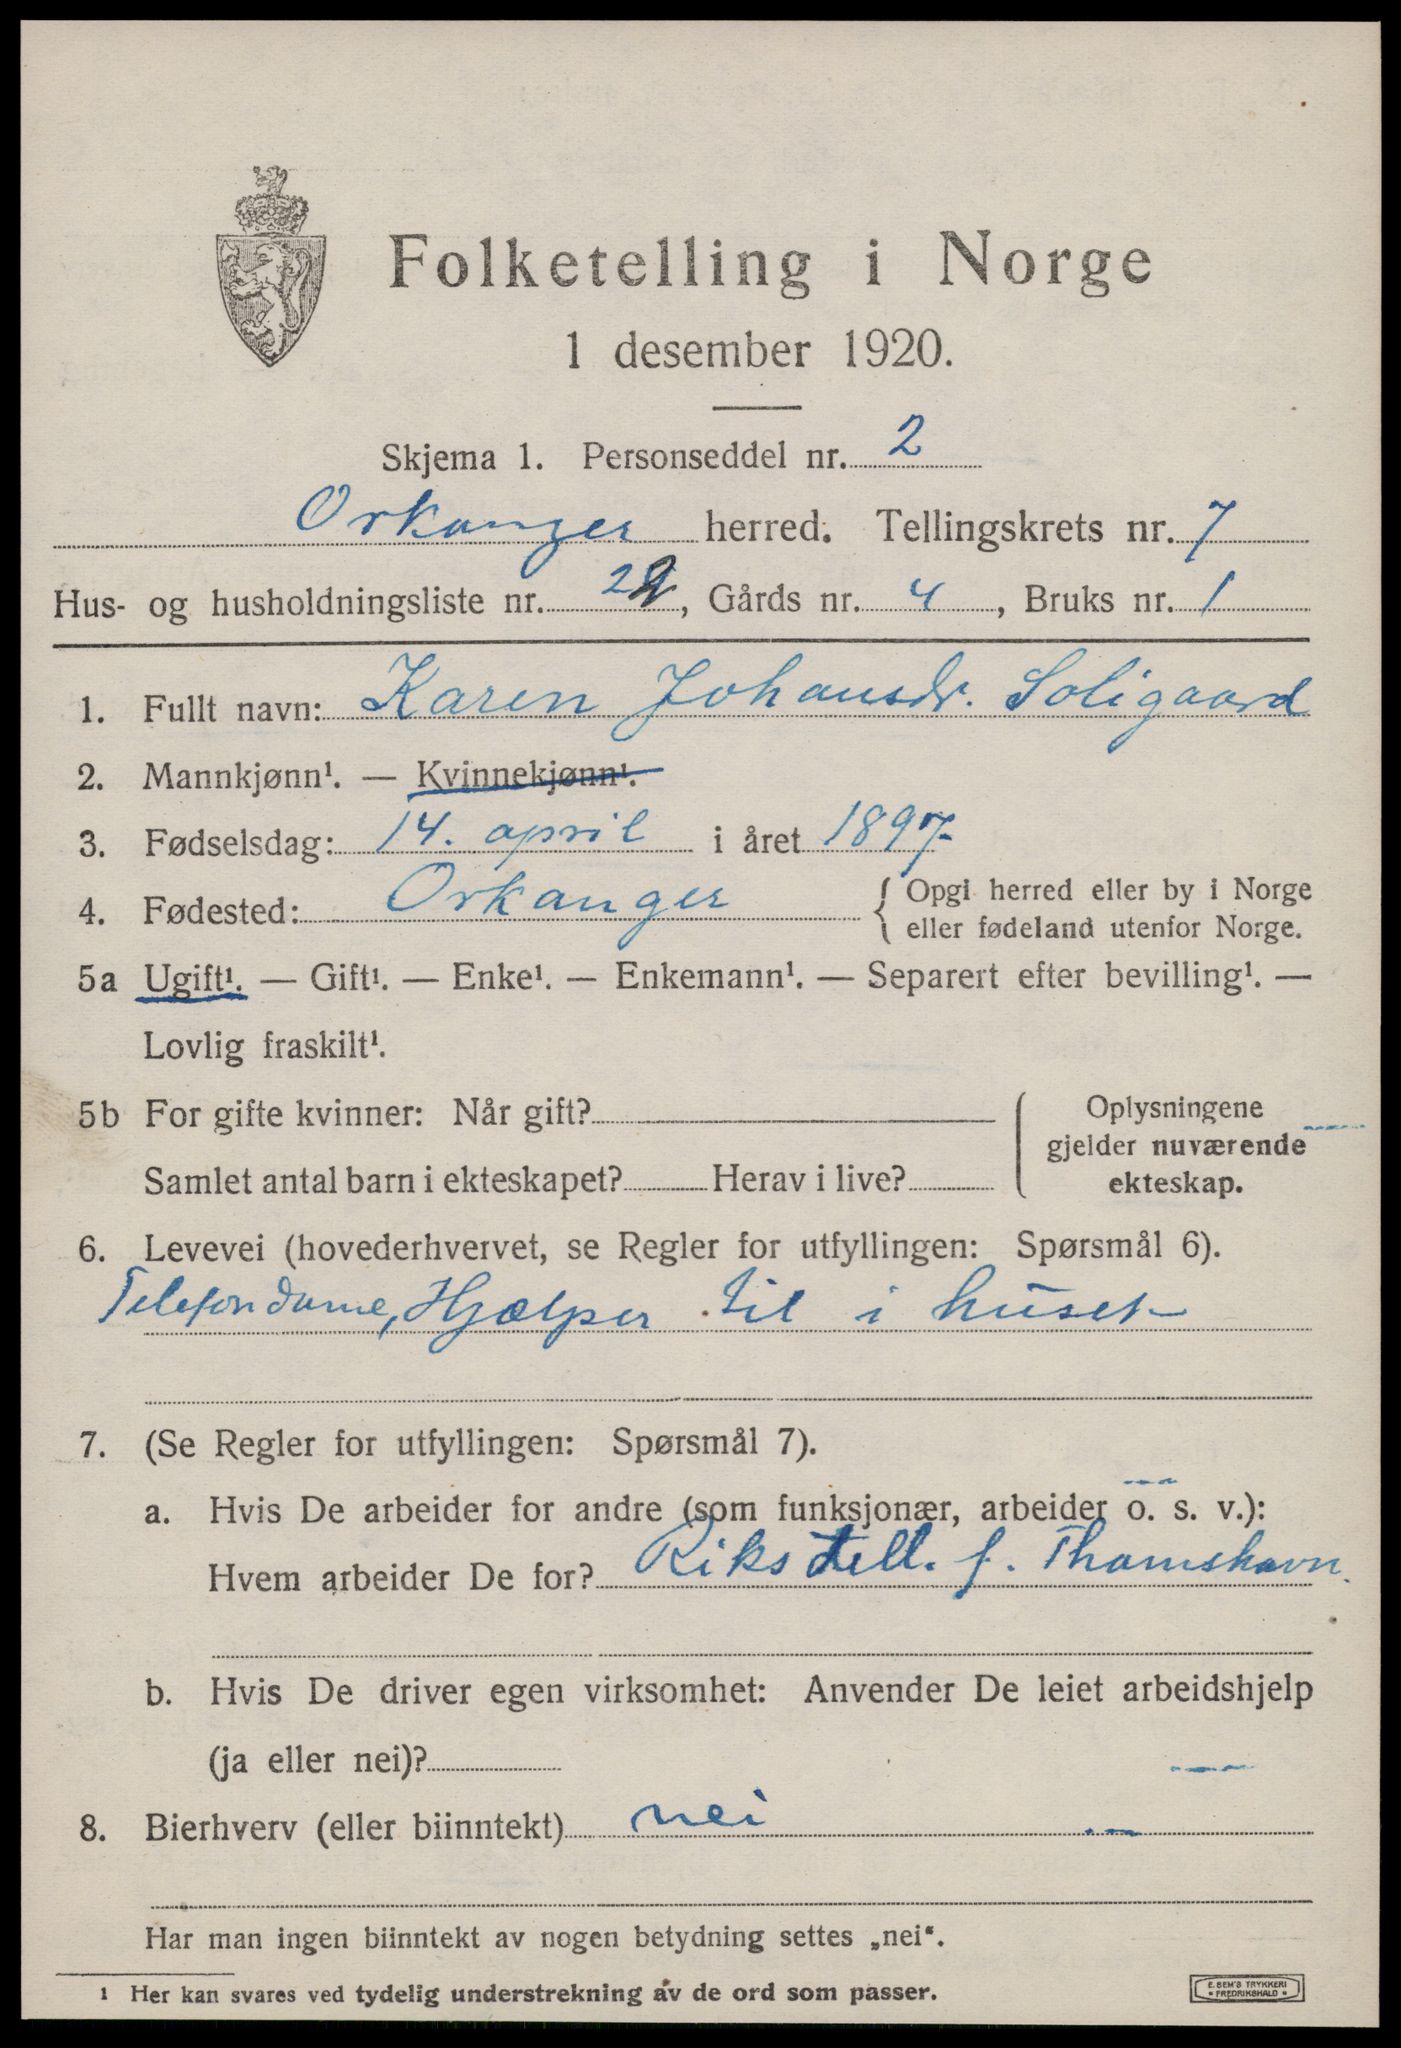 Folketelling i Norge
1 desember 1920.
Skjema 1. Personseddel nr. 2
Orkanger herred. Tellingskrets nr. 7
Hus- og husholdningsliste nr. 22, Gårds nr. 4, Bruks nr. 1
1. Fullt navn: Karen Johansdr. Soligaard
2. Mannkjønn¹. — Kvinnekjønn¹.
3. Fødselsdag: 14. april i året 1897
4. Fødested: Orkanger { Opgi herred eller by i Norge
eller fødeland utenfor Norge.
5a Ugift¹. — Gift¹. — Enke¹. — Enkemann¹. — Separert efter bevilling¹. —
Lovlig fraskilt¹.
5b For gifte kvinner: Når gift? Oplysningene
gjelder nuværende
Samlet antal barn i ekteskapet? Herav i live? ekteskap.
6. Levevei (hovederhvervet, se Regler for utfyllingen: Spørsmål 6).
Telefondame, Hjælper til i huset
7. (Se Regler for utfyllingen: Spørsmål 7).
a. Hvis De arbeider for andre (som funksjonær, arbeider o. s. v.):
Hvem arbeider De for? Rikstell. f. Thamshavn.
b. Hvis De driver egen virksomhet: Anvender De leiet arbeidshjelp
(ja eller nei)?
8. Bierhverv (eller biinntekt) nei
Har man ingen biinntekt av nogen betydning settes „nei“.
¹ Her kan svares ved tydelig understrekning av de ord som passer.
E. SEM'S TRYKKERI
FREDRIKSHALD